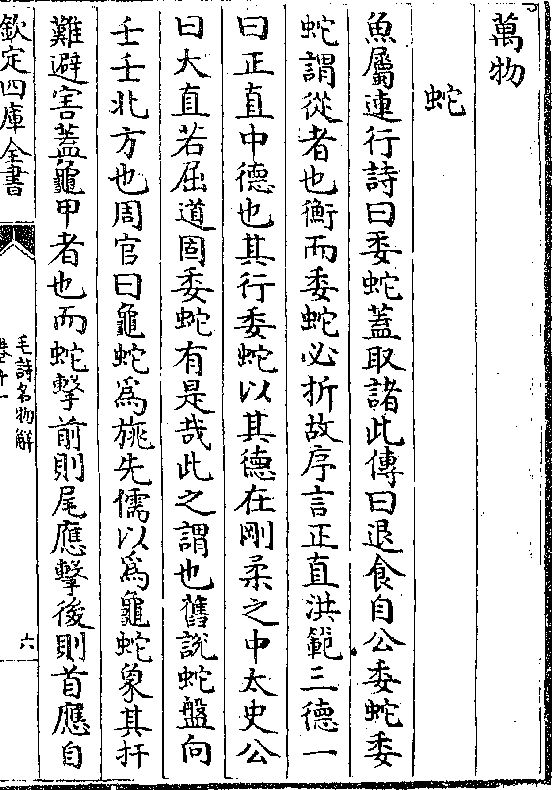 萬物
蛇
魚屬連行詩曰委蛇蓋取諸此傳曰退食自公委蛇委
蛇謂從者也衡而委蛇必折故序言正直洪範三德一
曰正直中德也其行委蛇以其德在剛柔之中太史公
曰大直若屈道固委蛇有是哉此之謂也舊説蛇盤向
壬壬北方也周官曰龜蛇爲旐先儒以爲龜蛇象其扞
難避害蓋龜甲者也而蛇擊前則尾應擊後則首應自
欽定四庫全書
毛詩名物解
卷十一
六